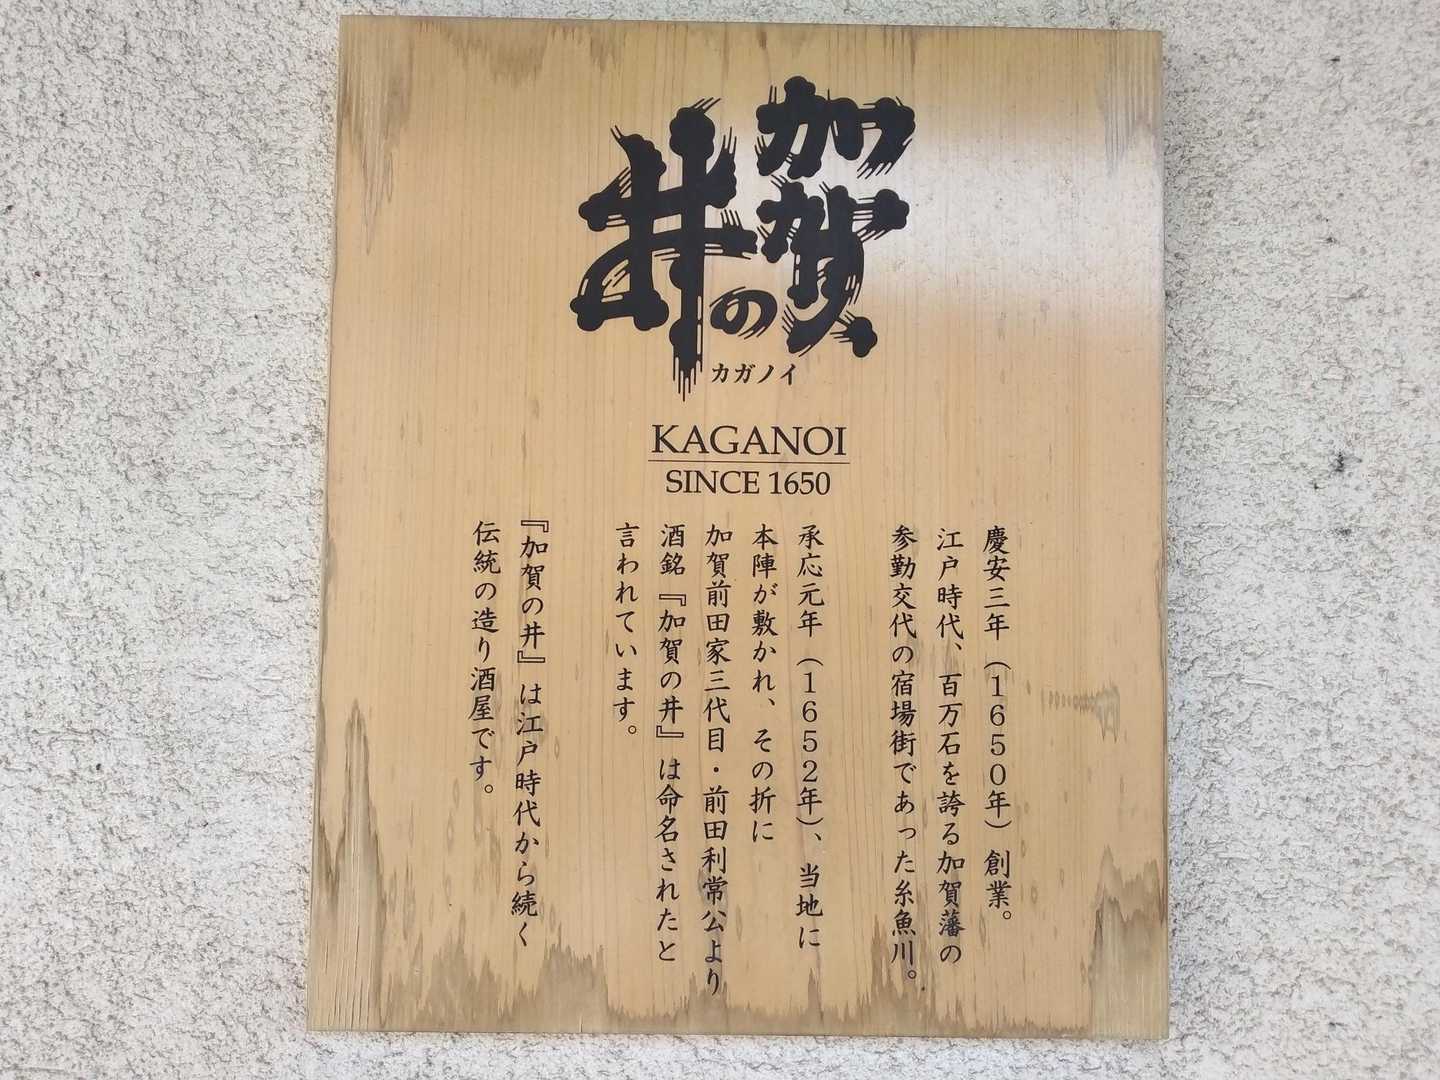 加賀の井
カガノイ
KAGANOI
SINCE 1650
慶安三年（1650年）創業。
江戸時代、百万石を誇る加賀藩の
参勤交代の宿場街であった糸魚川。
承応元年（1652年）、当地に
本陣が敷かれ、その折に
加賀前田家三代目・前田利常公より
酒銘『加賀の井』は命名されたと
言われています。
『加賀の井』は江戸時代から続く
伝統の造り酒屋です。